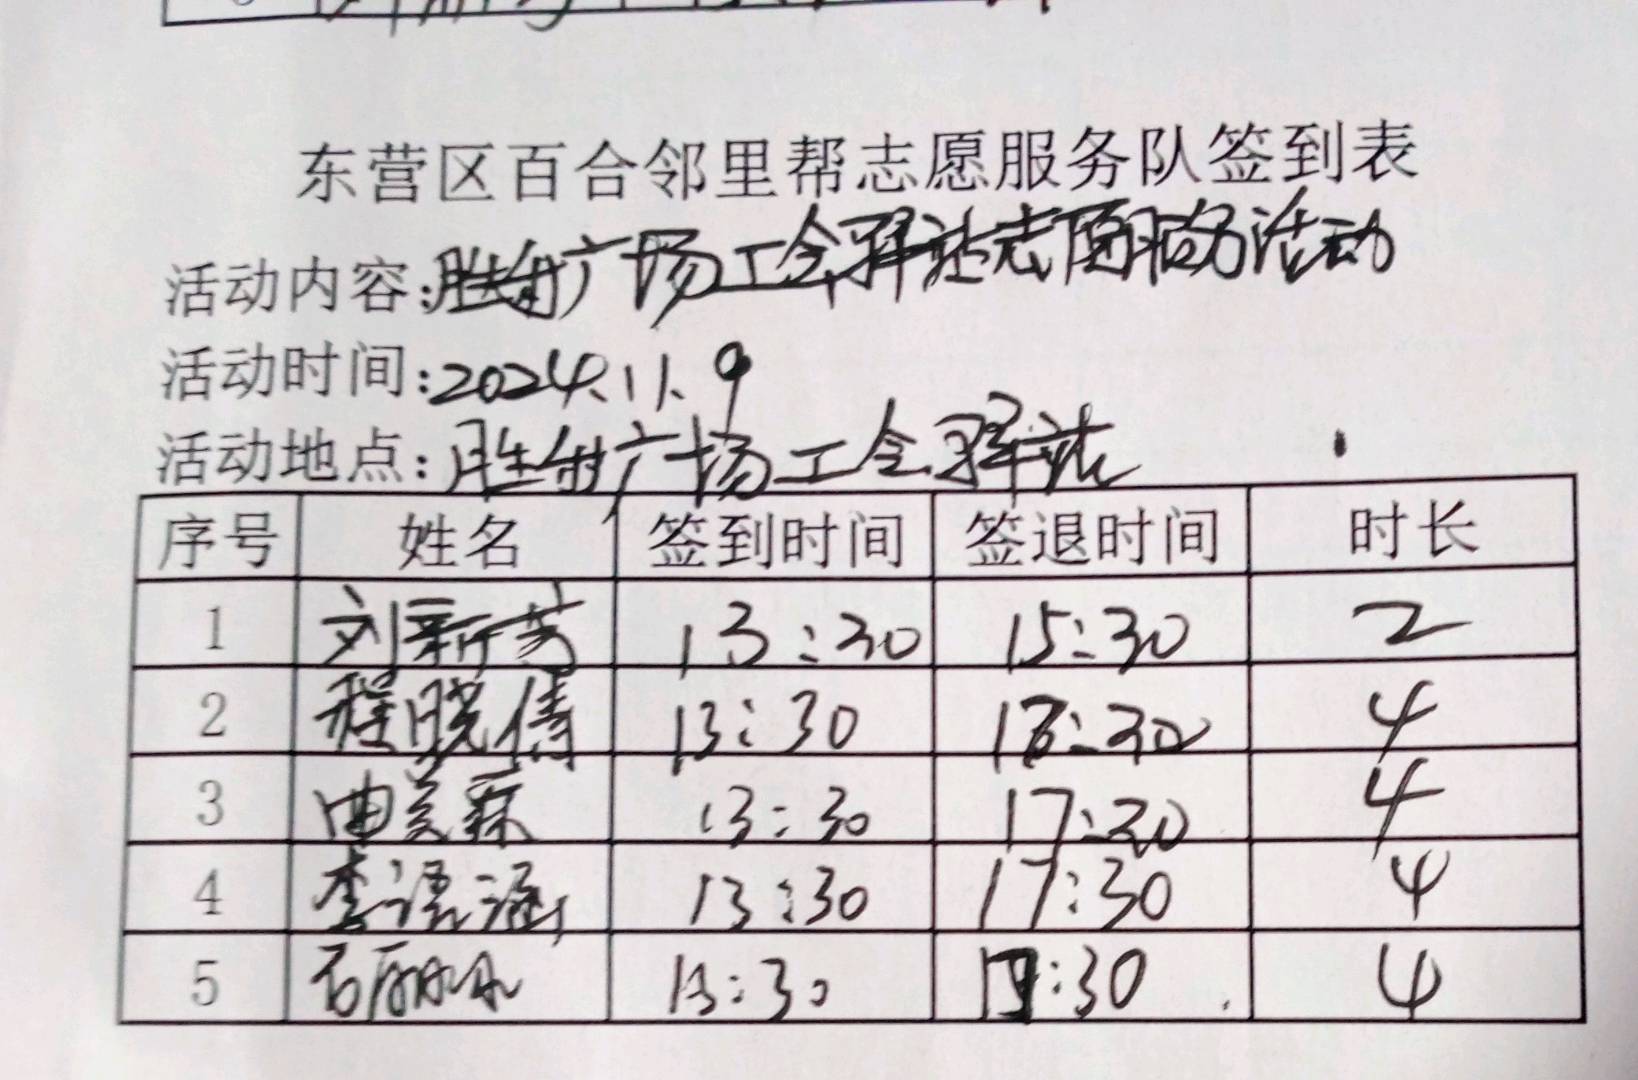 东营区百合邻里帮志愿服务队签到表
活动内容:胜利广场工会驿站志愿服务活动
活动时间:2024.11.9
活动地点:胜利广场工会驿站
序号 姓名 签到时间 签退时间 时长
1 刘新芳 13:30 15:30 2
2 程晓倩 13:30 4
3 曲美霖 13:30 17:30 4
4 李语涵 13:30 17:30 4
5 13:30 17:30 4